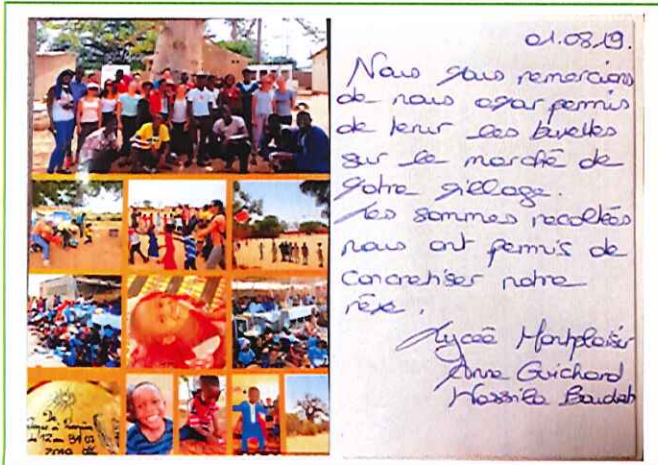 01.08.19.
Nous vous remercions
de nous avoir permis
de tenir les buvettes
sur le marché de
votre village.
Les sommes recoltées
nous ont permis de
concretiser notre
rêve.
Lycée Montplaisir
Anne Guichard
Wassila
De
à
du 12 au
2019